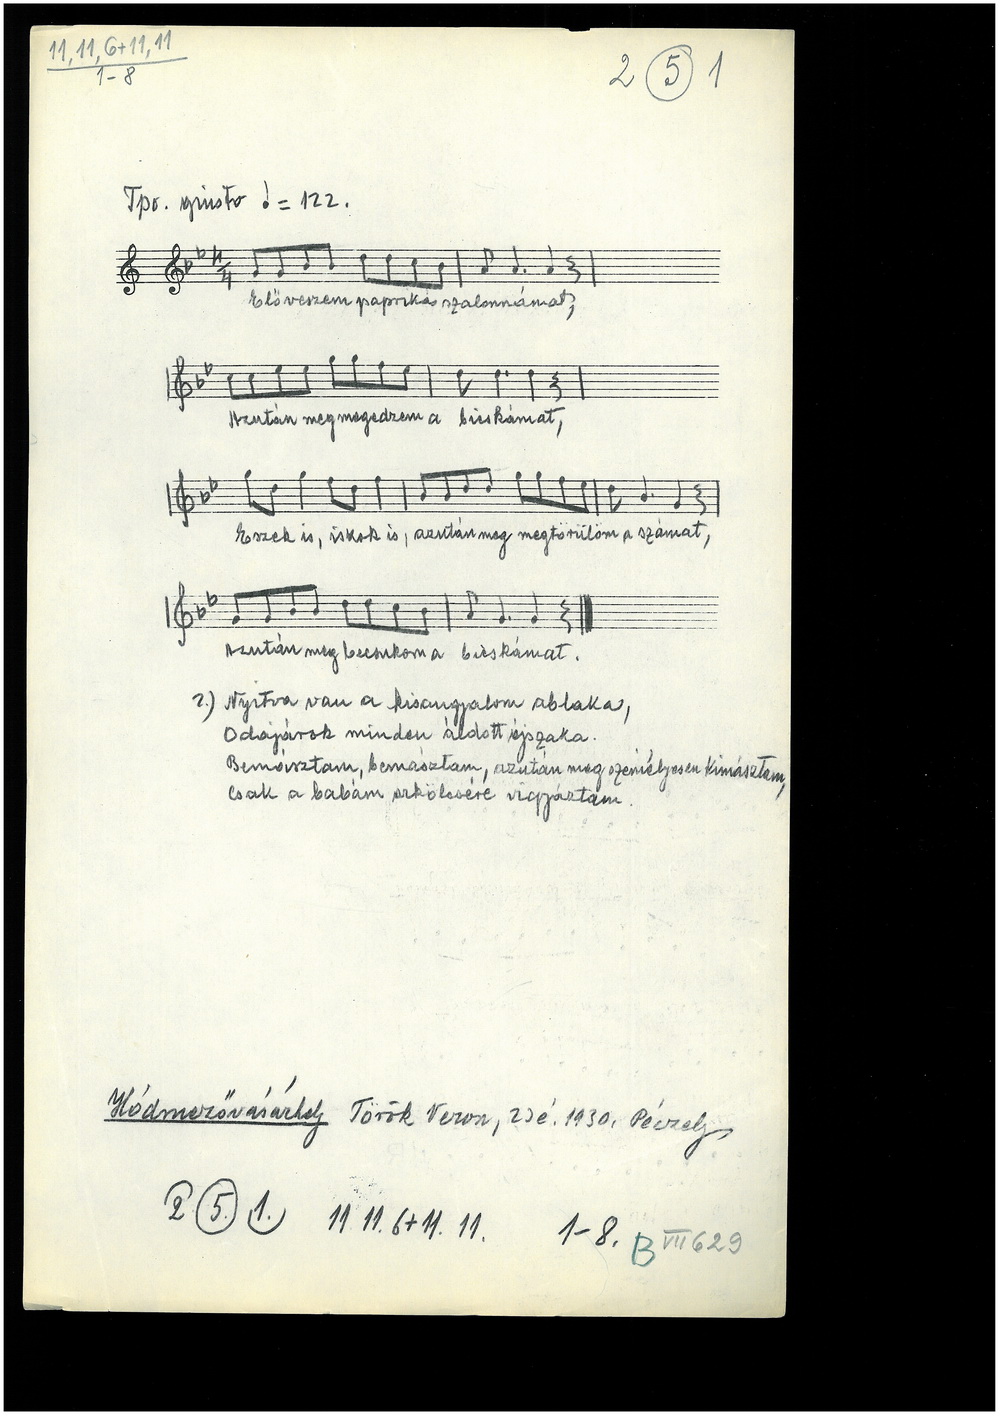 11, 11, 6+11, 11
1-8
2 5 1
Tpo. giusto ♩ = 122.
4/4
Előveszem paprikás szalonnámat,
Azután meg megedzem a bicskámat,
Eszek is, iszok is, azután meg megtörülöm a számat,
Azután meg becsukom a bicskámat.
2.) Nyitva van a kisangyalom ablaka,
Odajárok minden áldott éjszaka.
Bemásztam, bemásztam, azután meg személyesen kimásztam,
Csak a babám erkölcsére vigyáztam.
Hódmezővásárhely Török Veron, 23 é. 1930. Péczely
2 5. 1. 11 11. 6+11. 11. 1-8. B VII 629